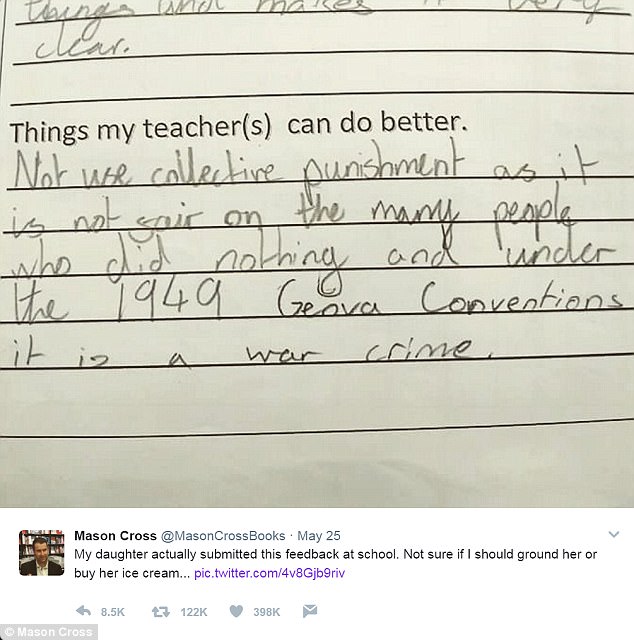 things and makes it very
clear.
Things my teacher(s) can do better.
Not use collective punishment as it
is not fair on the many people
who did nothing and under
the 1949 Geneva Conventions
it is a war crime.
Mason Cross @MasonCrossBooks · May 25
My daughter actually submitted this feedback at school. Not sure if I should ground her or
buy her ice cream... pic.twitter.com/4v8Gjb9riv
8.5K 122K 398K
© Mason Cross